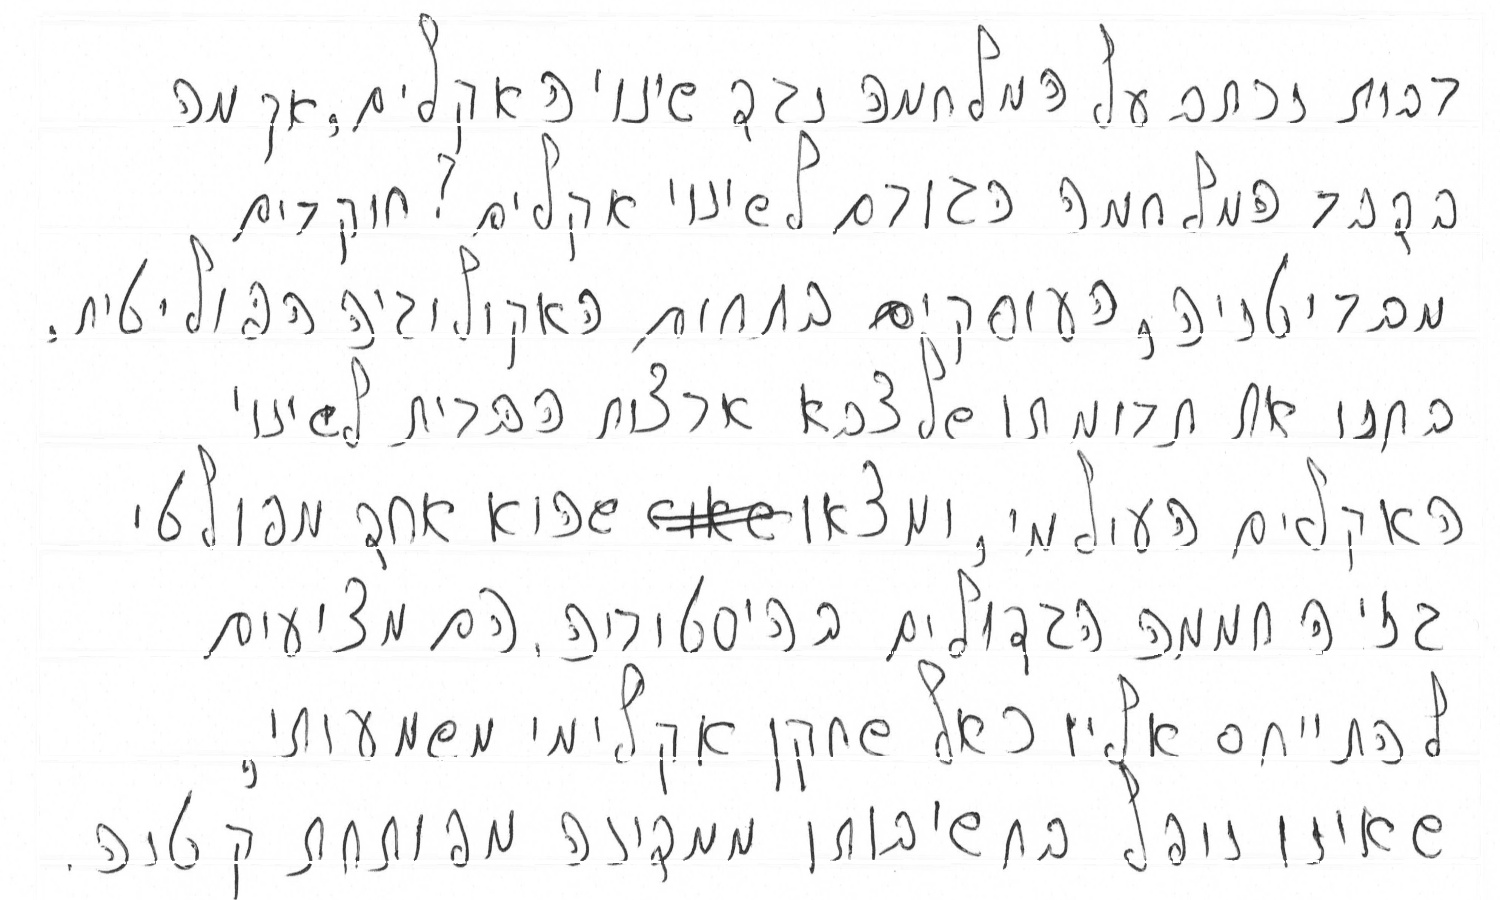 רבות נכתב על המלחמה נגד שינוי האקלים, אך מה
בדבר המלחמה הגורם לשינוי אקלים? חוקרים
מבריטניה, העוסקים בתחום האקולוגיה הפוליטית,
בחנו את תרומתו של צבא ארצות הברית לשינוי
האקלים העולמי, ומצאו שהוא אחד מפולטי
גזי החממה הגדולים בהיסטוריה. הם מציעים
להתייחס אליו כאל שחקן אקלימי משמעותי,
שאינו נופל בחשיבותו ממדינה מפותחת קטנה.